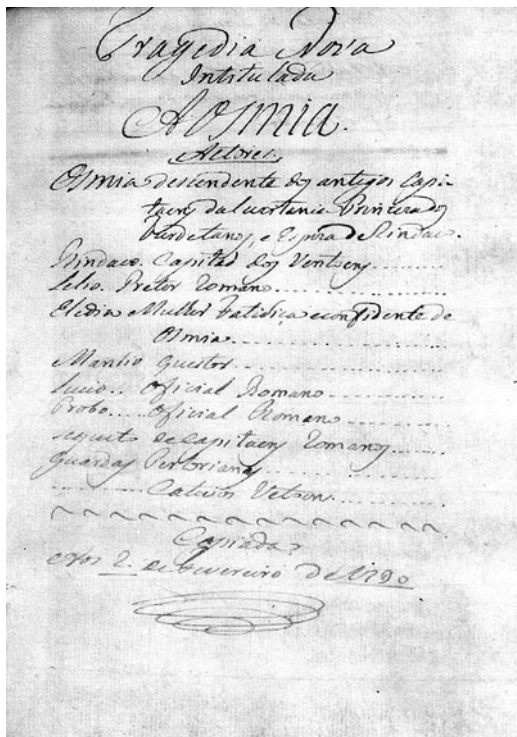 Tragedia Nova
Intitulada
A Osmia.
Actores.
Osmia descendente dos antigos Capi-
taens da Luzitania Princeza dos
Turdetanos, e Espoza de Rindaco.
Rindaco. Capitaõ dos
Lelio. Pretor Romano
Eledia Mulher Fatidica confidente de
Osmia
Manlio Questor
Lucio.. Oficial Romano
Probo... Oficial Romano
sequito de Capitaens Romanos
Guardas Pertorianas
Copiada
Aos 2. de Fevereiro de 1790